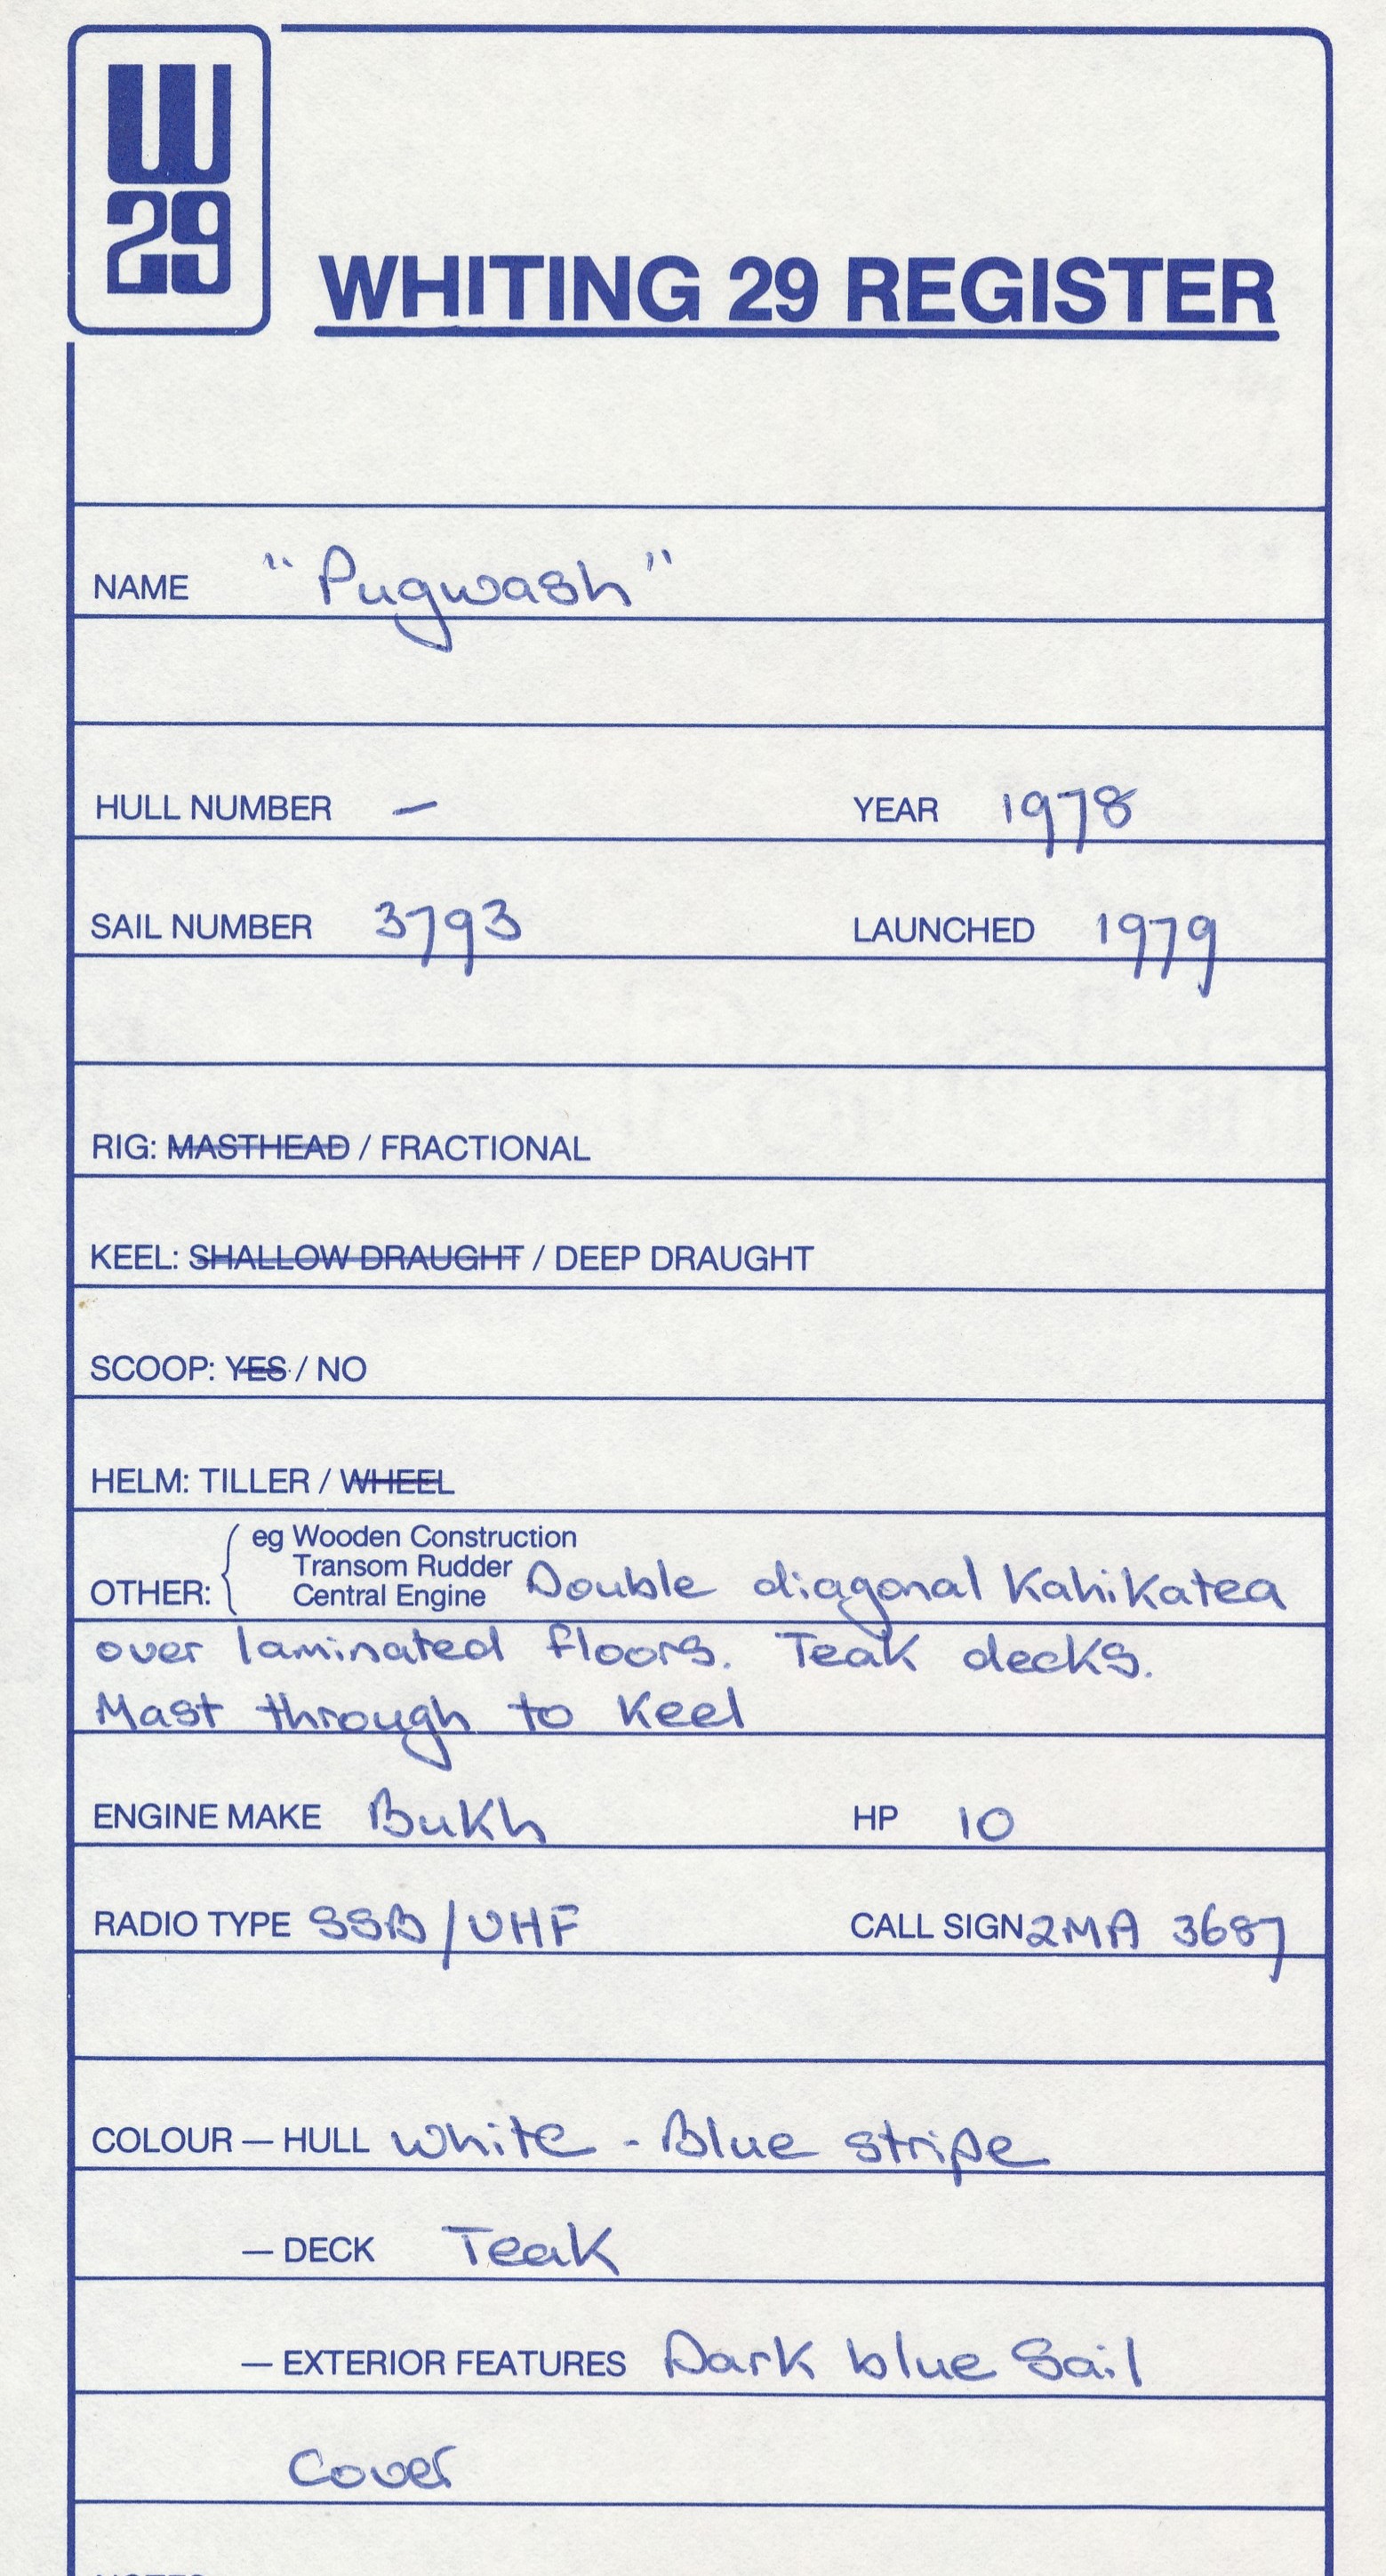 W
29
WHITING 29 REGISTER
NAME "Pugwash"
HULL NUMBER — YEAR 1978
SAIL NUMBER 3793 LAUNCHED 1979
RIG: MASTHEAD / FRACTIONAL
KEEL: SHALLOW DRAUGHT / DEEP DRAUGHT
SCOOP: YES / NO
HELM: TILLER / WHEEL
eg Wooden Construction
Transom Rudder
OTHER: Central Engine Double diagonal Kahikatea
over laminated floors. Teak decks.
Mast through to Keel
ENGINE MAKE Bukh HP 10
RADIO TYPE SSB/VHF CALL SIGN ZMA 3687
COLOUR — HULL White - Blue stripe
— DECK Teak
— EXTERIOR FEATURES Dark blue Sail
Cover